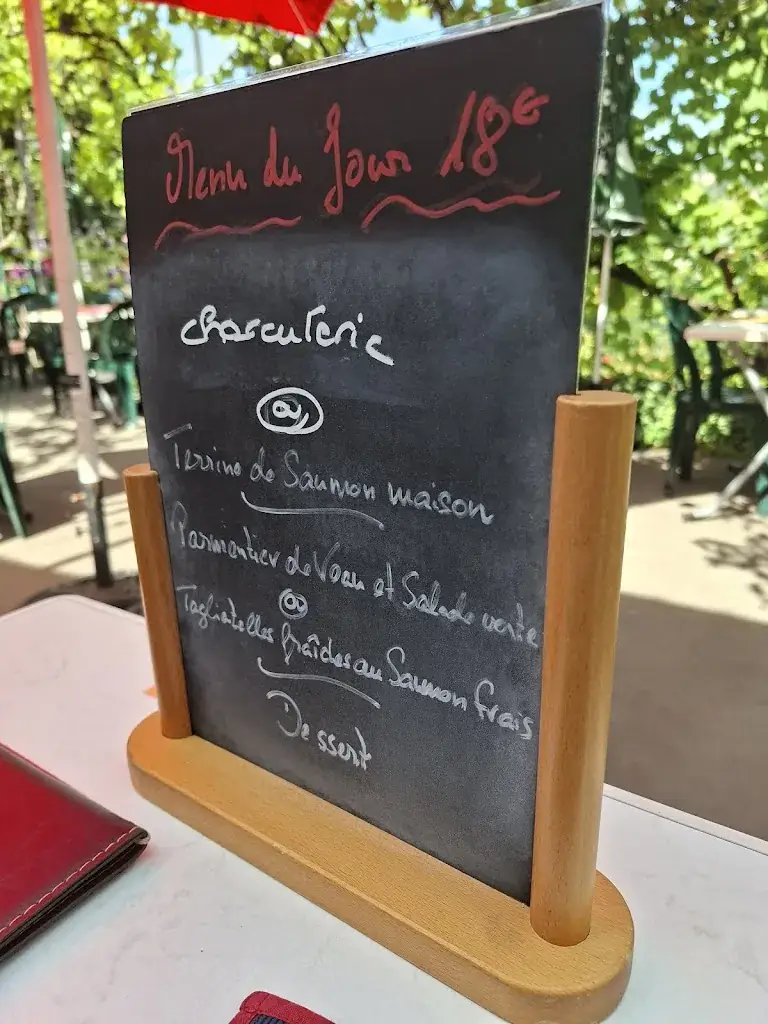 Menu du Jour 18€
charcuterie
@
Terrine de Saumon maison
Parmentier de Veau et Salade verte
@
Tagliatelles fraîches au Saumon frais
Dessert